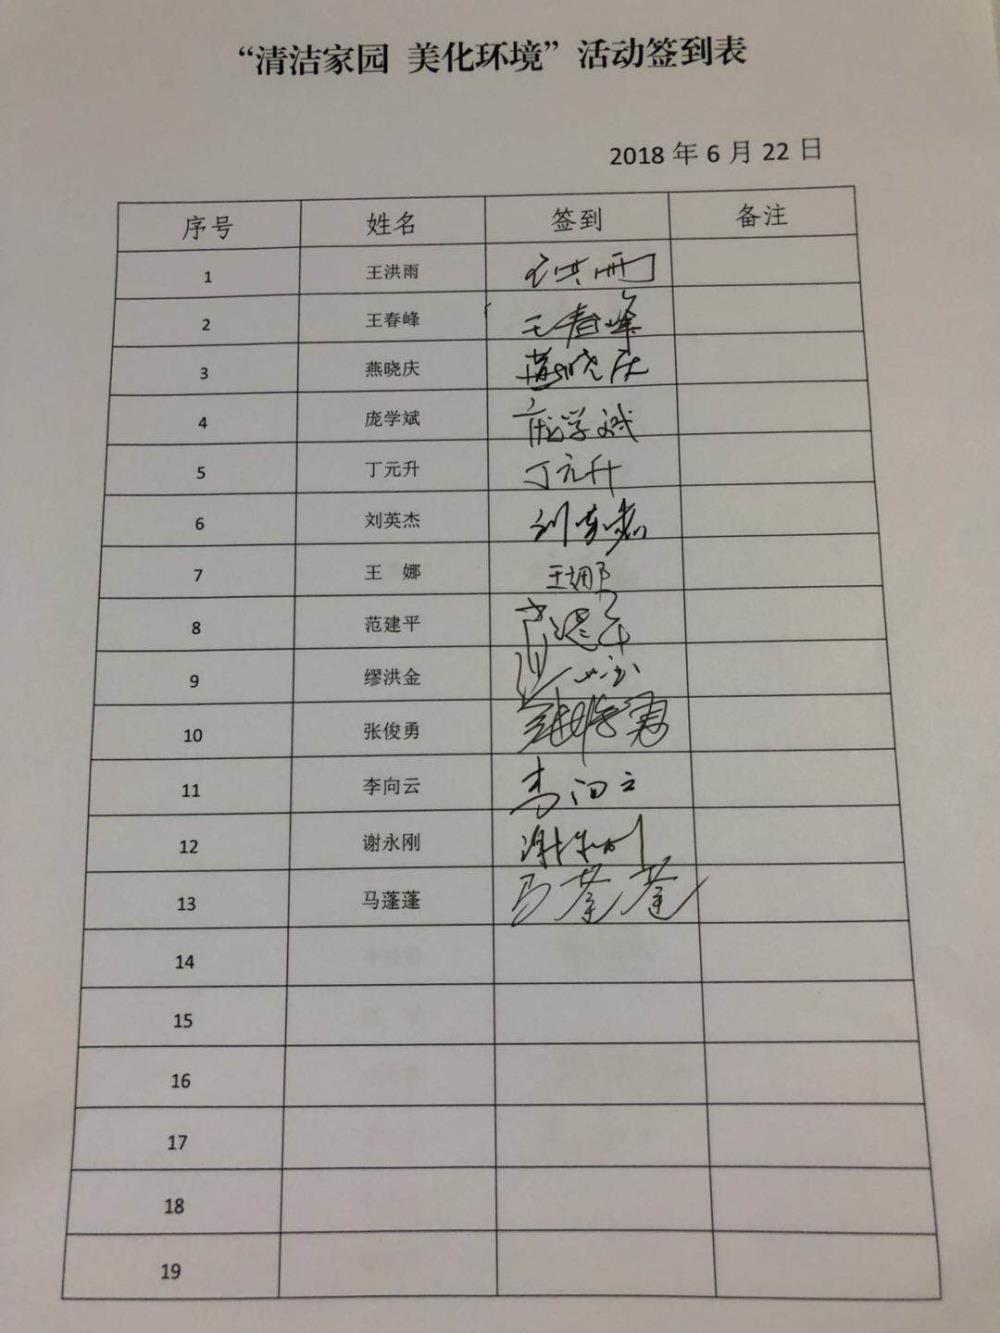 “清洁家园 美化环境”活动签到表
2018 年 6 月 22 日
序号 姓名 签到 备注
1 王洪雨 王洪雨
2 王春峰 王春峰
3 燕晓庆 燕晓庆
4 庞学斌 庞学斌
5 丁元升 丁元升
6 刘英杰 刘英杰
7 王 娜 王娜
8 范建平 范建平
9 缪洪金
10 张俊勇
11 李向云 李向云
12 谢永刚 谢永刚
13 马蓬蓬 马蓬蓬
14
15
16
17
18
19